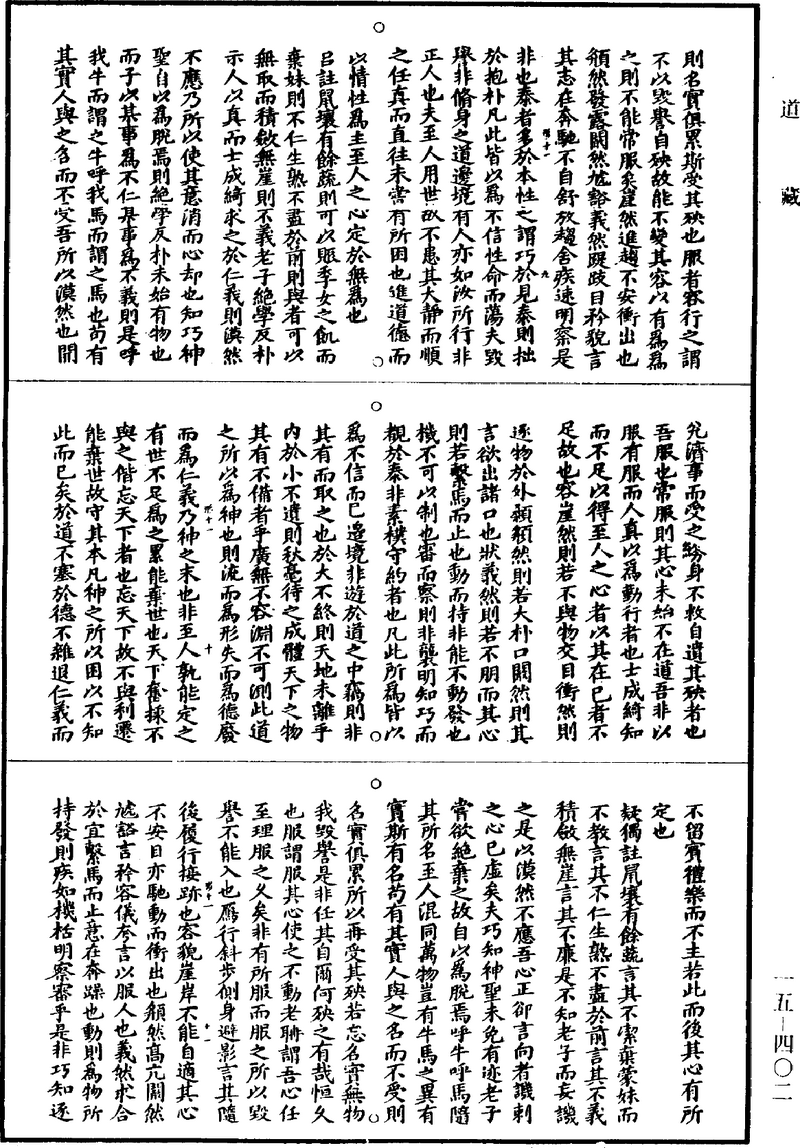 道藏
則名實俱累斯受其殃也服者容行之謂
不以毀譽自殃故能不變其容以有為為
之則不能常服矣崖然進趨不安衝出也
頯然發露闞然虓豁義然踶跂自矜貌言
其志在奔馳不自舒放趨舍疾速明察是
非也泰者多於本性之謂巧於見泰則拙
於抱朴凡此皆以為不信性命而蕩夫毀
譽非脩身之道邊境有人亦如汝所行非
正人也夫至人用世故不患其大静而順
之任真而直往未嘗有所困也進道德而
以情性為主至人之心定於無為也
呂註鼠壤有餘蔬則可以賑季女之飢而
棄妹則不仁生熟不盡於前則與者可以
無取而積斂無崖則不義老子絕學反朴
示人以真而士成綺求之於仁義則漠然
不應乃所以使其意消而心却也知巧神
聖自以為脫焉則絕學反朴未始有物也
而子以某事為不仁某事為不義則是呼
我牛而謂之牛呼我馬而謂之馬也苟有
其實人與之名而不受吾所以漠然也開
兌濟事而受之紛身不救自遺其殃者也
吾服也常服則其心未始不在道吾非以
服有服而人真以為動行者也士成綺知
而不足以得至人之心者以其在已者不
足故也容崖然則若不與物交目衝然則
逐物於外顙頯然則若大朴口闞然則其
言欲出諸口也狀義然則若不朋而其心
則若繫馬而止也動而持非能不動發也
機不可以制也審而察則非襲明知巧而
覩於泰非素樸守約者也凡此所為皆以
為不信而已邊境非遊於道之中竊則非
其有而取之也於大不終則天地未離乎
內於小不遺則秋毫待之成體天下之物
其有不備者乎廣無不容淵不可測此道
之所以為神也則流而為形失而為德廢
而為仁義乃神之末也非至人孰能定之
有世不足為之累能棄世也天下奮棅不
與之偕忘天下者也忘天下故不與利遷
能棄世故守其本凡神之所以困以不知
此而已矣於道不塞於德不離退仁義而
不留賓禮樂而不主若此而後其心有所
定也
疑獨註鼠壤有餘蔬言其不潔棄蒙妹而
不教言其不仁生熟不盡於前言其不義
積斂無崖言其不廉是不知老子而妄譏
之是以漠然不應吾心正卻言向者譏刺
之心已虛矣夫巧知神聖未免有迹老子
嘗欲絕棄之故自以為脫焉呼牛呼馬隨
其所名至人混同萬物豈有牛馬之異有
實斯有名苟有其實人與之名而不受則
名實俱累所以再受其殃若忘名實無物
我毀譽是非任其自爾何殃之有哉恒久
也服謂服其心使之不動老聃謂吾心任
至理服之久矣非有所服而服之所以毀
譽不能入也鴈行斜步側身避影言其隨
後履行接跡也容貌崖岸不能自適其心
不安目亦馳動而衝出也顙然高亢闞然
虓豁言矜容儀夸言以服人也義然求合
於宜繫馬而止意在奔躁也動則為物所
持發則疾如機栝明察審乎是非巧知逐
一五-四〇二